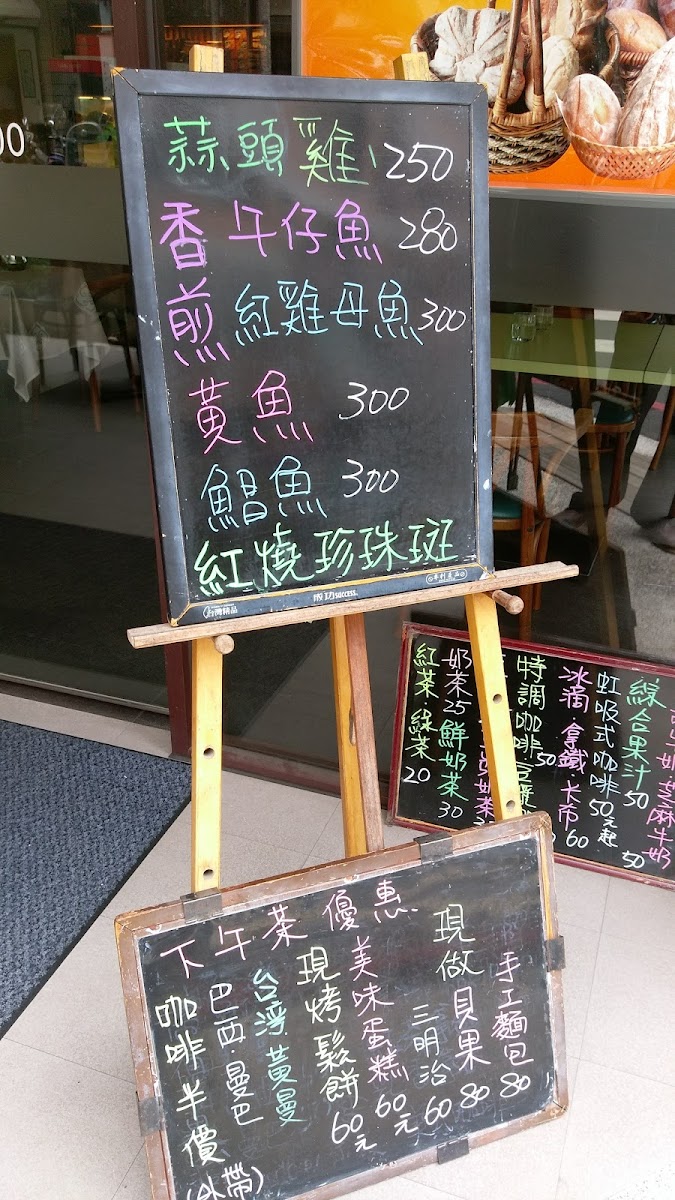 00
蒜頭雞 250
香煎
午仔魚 280
紅雞母魚 300
黃魚 300
鯧魚 300
紅燒珍珠斑
台灣精品
成功 SUCCESS
專利產品
紅茶·綠茶 20
奶茶 25
鮮奶茶 30
特調咖啡 50
冰滴·拿鐵·卡布 60
虹吸式咖啡 50元起
綜合果汁 50
芝麻牛奶 50
下午茶優惠
咖啡半價(外帶)
巴西·曼巴
台灣黃曼
現烤鬆餅 60元
美味蛋糕 60元
現做
三明治 60
貝果 80
手工麵包 80